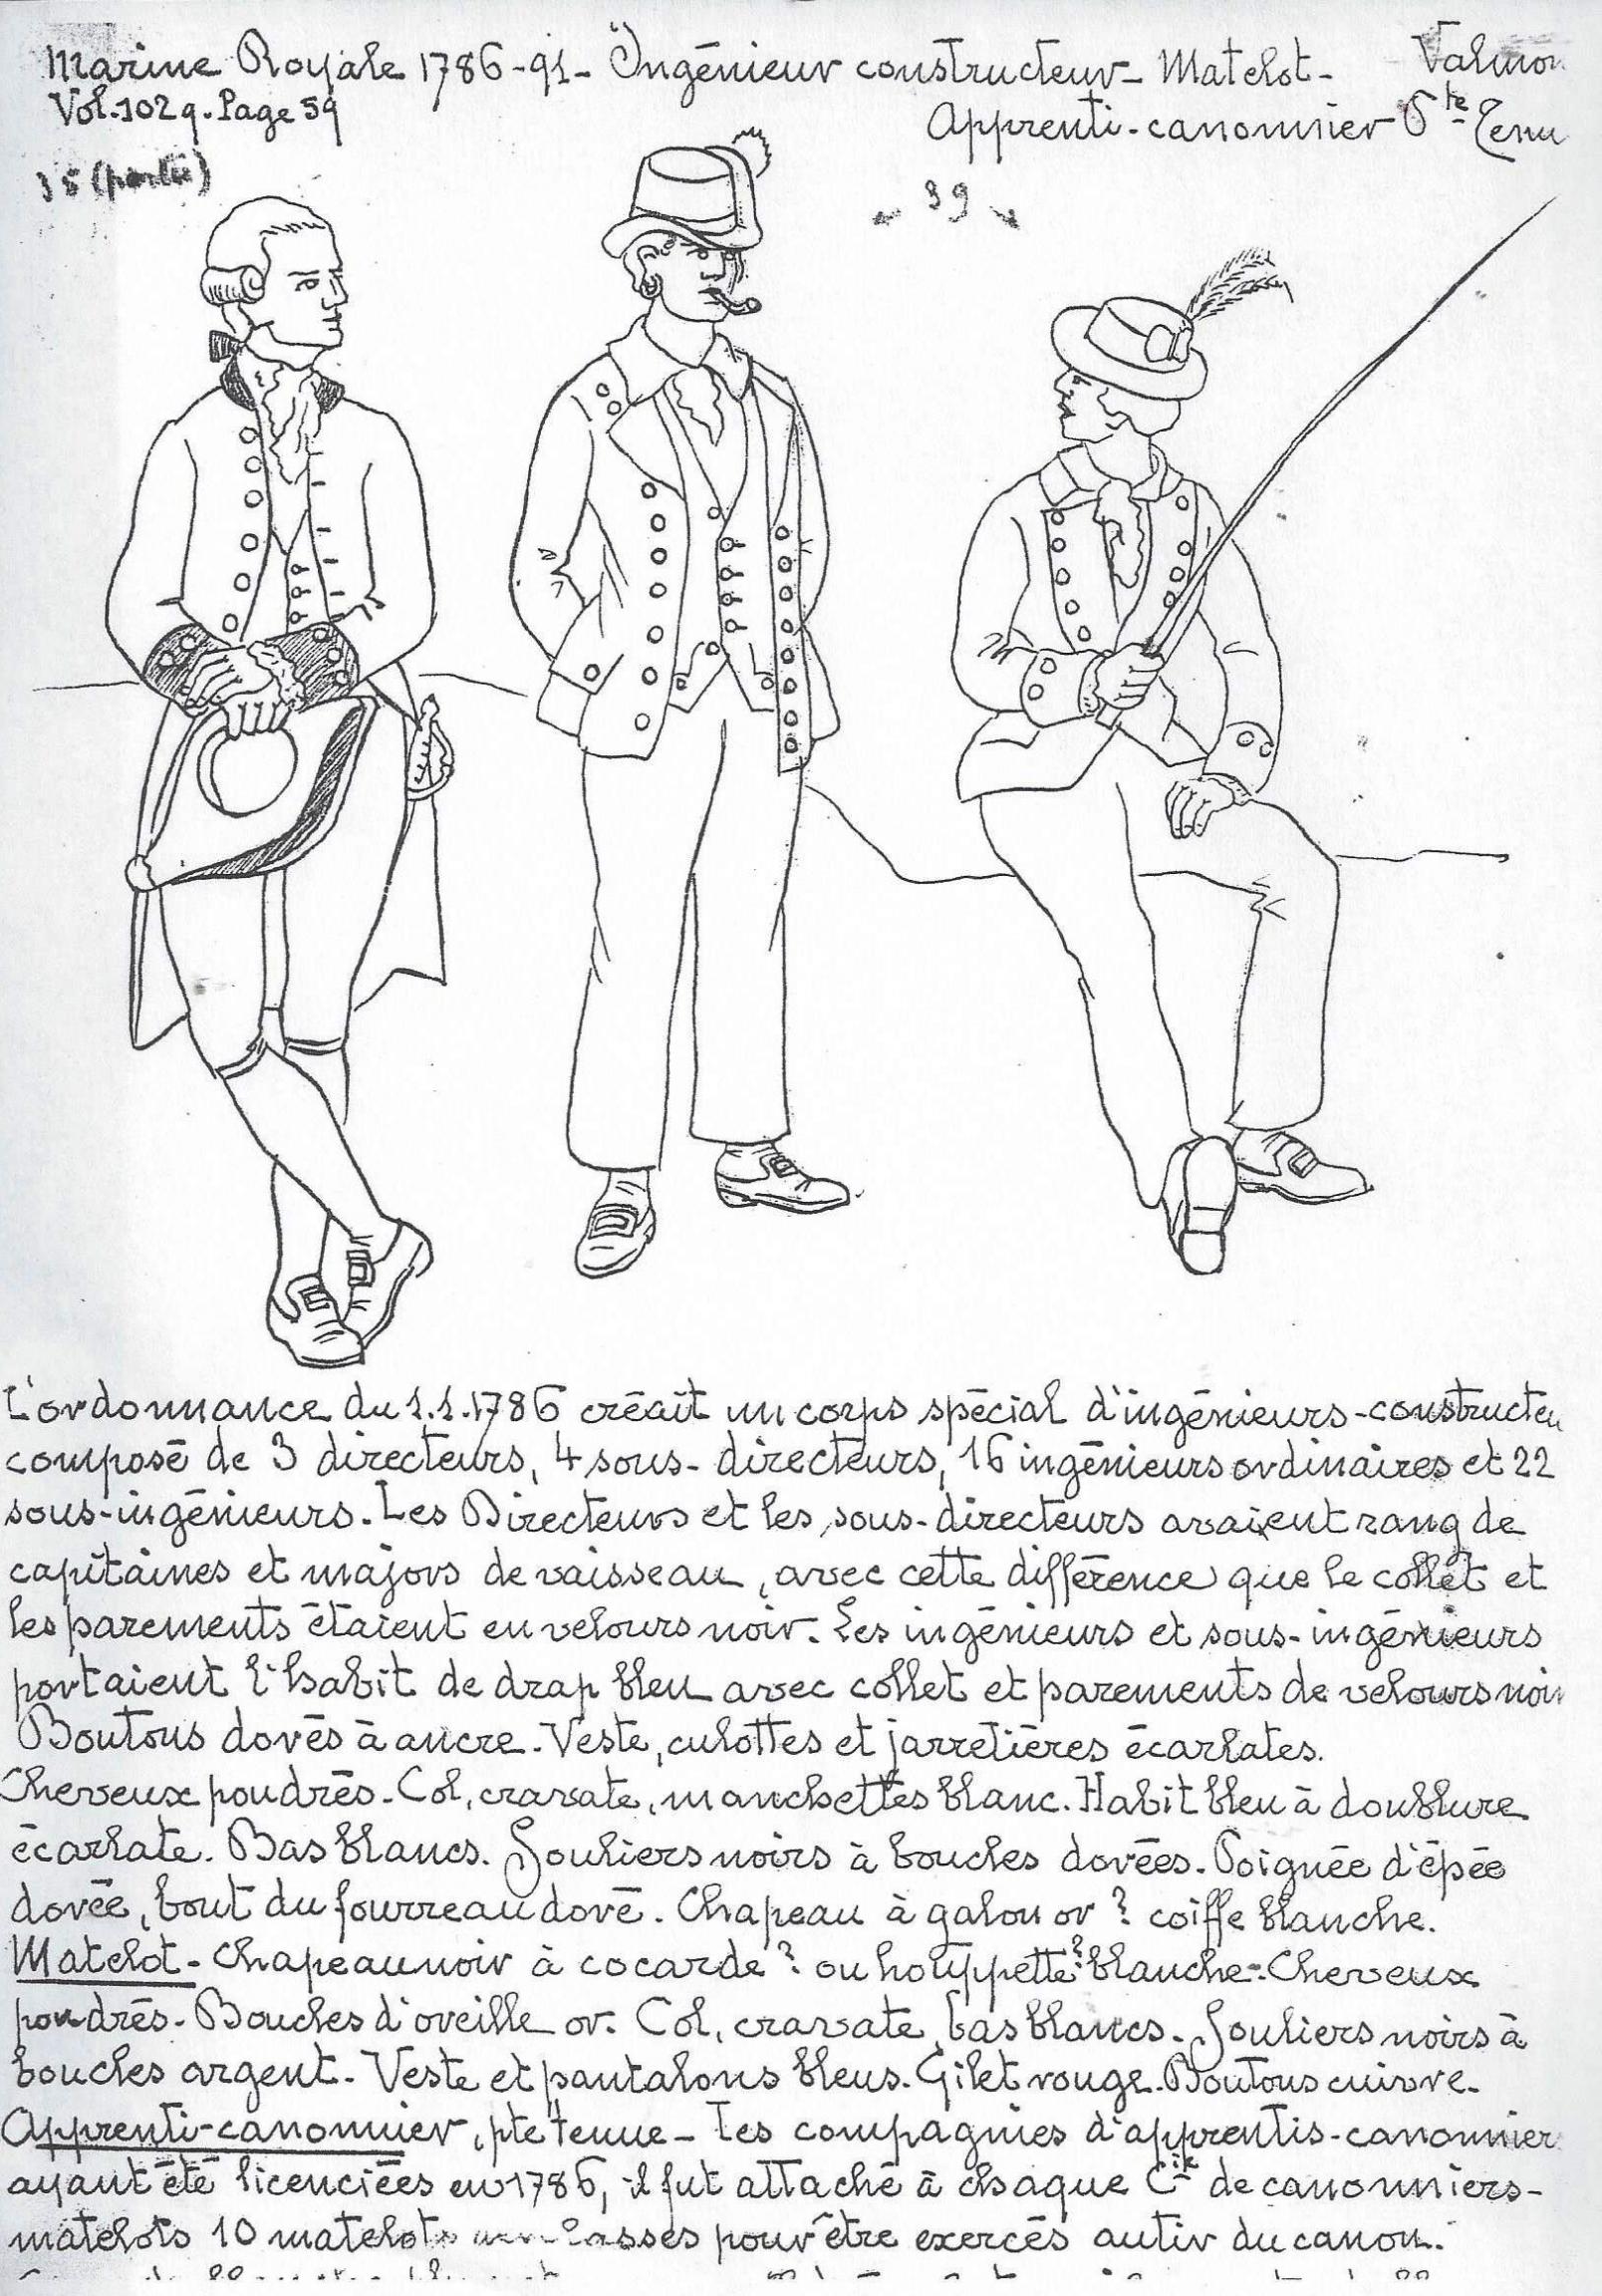 Marine Royale 1786-91- Ingénieur constructeur- Matelot- Valmon
Vol.102 q. Page 59 Apprenti-canonnier Pte Tenu
35 (partie)
39
L'ordonnance du 1.1.1786 créait un corps spécial d'ingénieurs-constructeu
composé de 3 directeurs, 4 sous-directeurs, 16 ingénieurs ordinaires et 22
sous-ingénieurs. Les Directeurs et les sous-directeurs avaient rang de
capitaines et majors de vaisseau, avec cette différence que le collet et
les parements étaient en velours noir. Les ingénieurs et sous-ingénieurs
portaient l'habit de drap bleu avec collet et parements de velours noir
Boutons dorés à ancre. Veste, culottes et jarretières écarlates.
Cheveux poudrés. Col, cravate, manchettes blanc. Habit bleu à doublure
écarlate. Bas blancs. Souliers noirs à boucles dorées. Poignée d'épée
dorée, bout du fourreau doré. Chapeau à galon or ? coiffe blanche.
Matelot- Chapeau noir à cocarde ? ou houppette ? blanche. Cheveux
poudrés. Boucles d'oreille or. Col, cravate, bas blancs. Souliers noirs à
boucles argent. Veste et pantalons bleus. Gilet rouge. Boutons cuivre.
Apprenti-canonnier, pte tenue- Les compagnies d'apprentis-canonnier
ayant été licenciées en 1786, il fut attaché à chaque Cie de canonniers-
matelots 10 matelots classés pour être exercés au tir du canon.